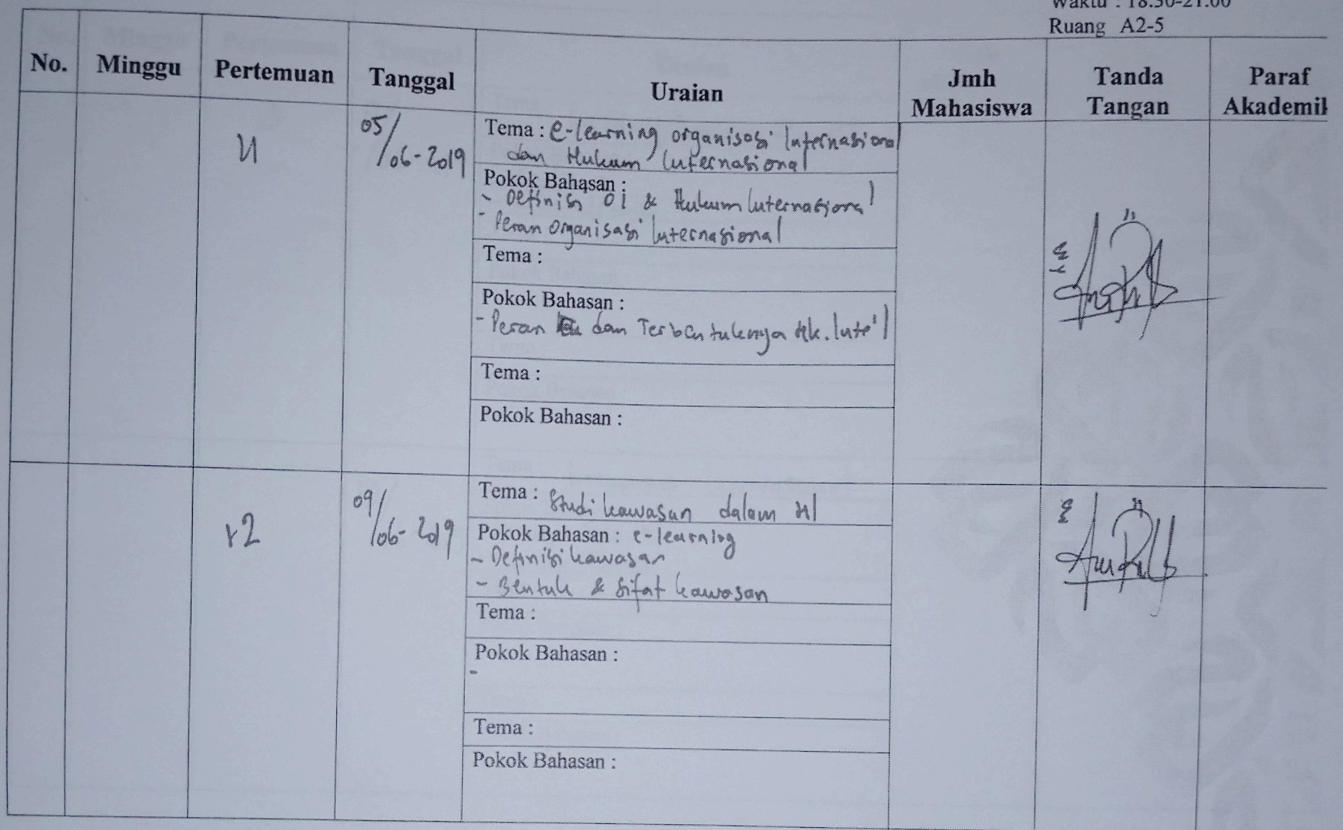 Waktu : 18.30-21.00
Ruang A2-5
No. Minggu Pertemuan Tanggal Uraian Jmh Mahasiswa Tanda Tangan Paraf Akademik
11 05/06-2019
Tema : e-learning organisasi Internasional
dan Hukum Internasional
Pokok Bahasan :
- Definisi OI & Hukum Internasional
- Peran Organisasi Internasional
Tema :
Pokok Bahasan :
- Peran dan Terbentuknya Hk. Inte'l
Tema :
Pokok Bahasan :
12 09/06-2019
Tema : Studi kawasan dalam HI
Pokok Bahasan : e-learning
- Definisi kawasan
- Bentuk & Sifat kawasan
Tema :
Pokok Bahasan :
-
Tema :
Pokok Bahasan :